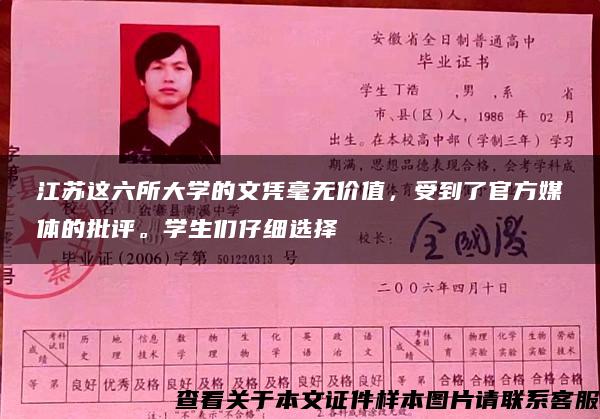 安徽省全日制普通高中
毕业证书
学生丁浩 ,男 ,系 省
市、县(区)人，1986 年 02 月
出生。在本校高中部（学制三年）学习
期满，思想品德表现合格，会考学科成
江苏这六所大学的文凭毫无价值，受到了官方媒
体的批评。学生们仔细选择
校长：
毕业证(2006)字第 501220313 号
二〇〇六年四月十日
考试科目 历史 地理 信息技术 数学 物理 生物 化学 英语 政治 语文
成绩
等第 良好 优秀 及格 良好 及格 及格 及格 良好 良好 良好
考查科目 体育 物理实验 化学实验 生物实验 劳动技术
成绩
等第 合格 合格 合格 合格 合格
查看关于本文证件样本图片请联系客服